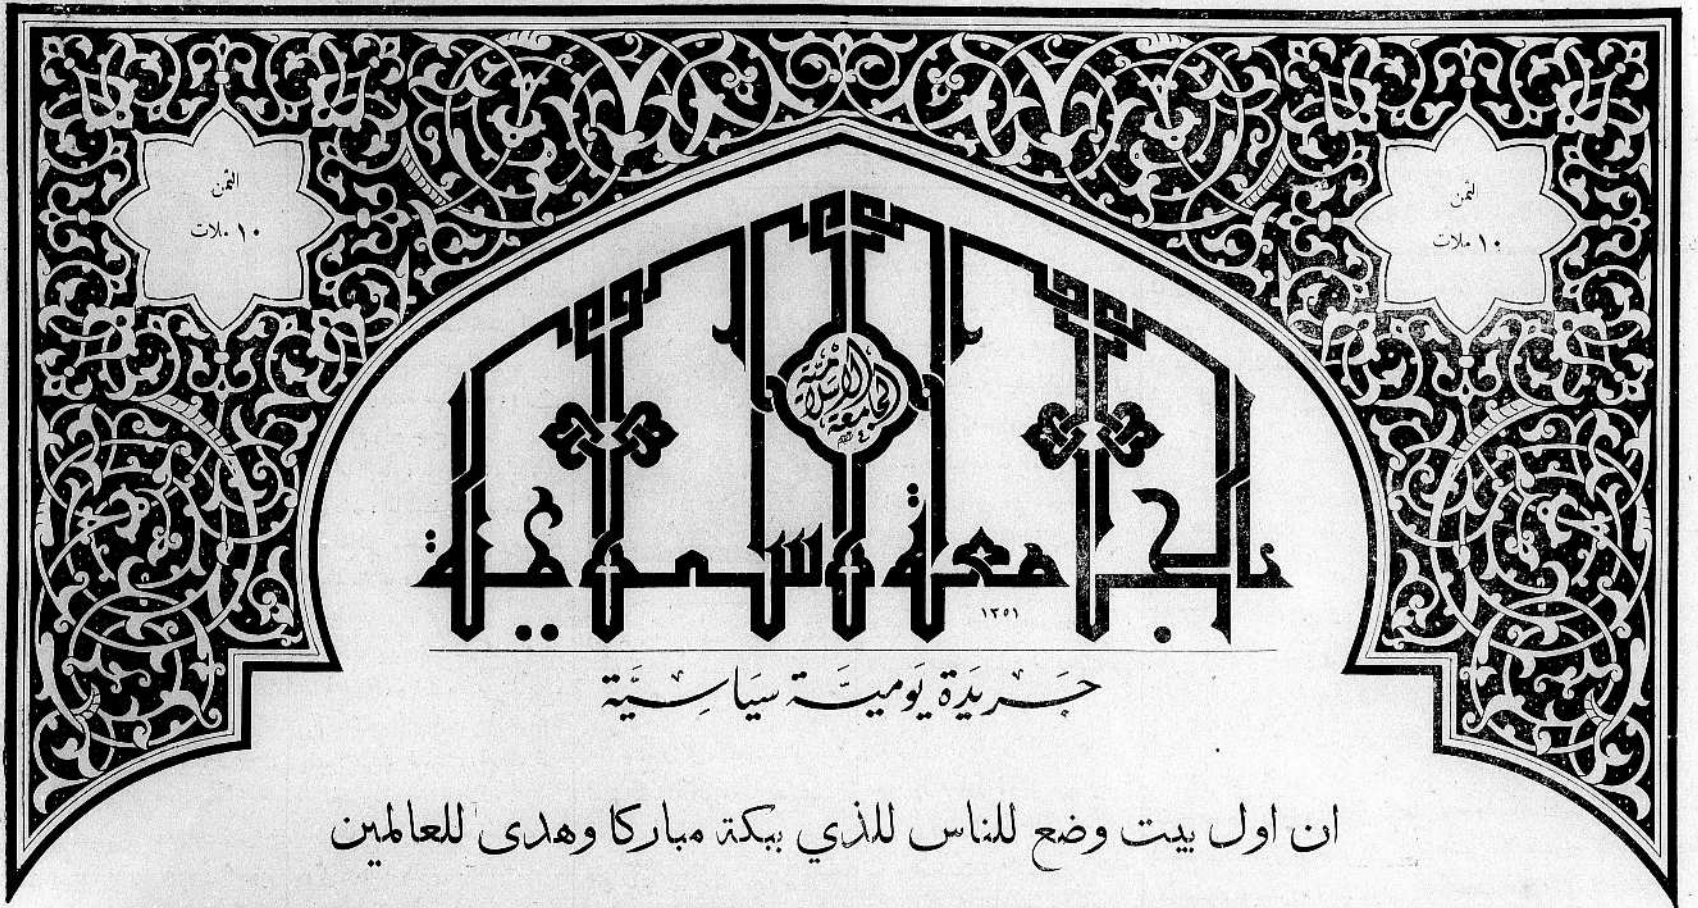 الثمن
١٠ ملات
الثمن
١٠ ملات
الجامعة الاسلامية
الجامعة الاسلامية
١٣٥١
جَريَدَة يَوميَّة سيَاسِيَّة
ان اول بيت وضع للناس للذي ببكة مباركا وهدى للعالمين